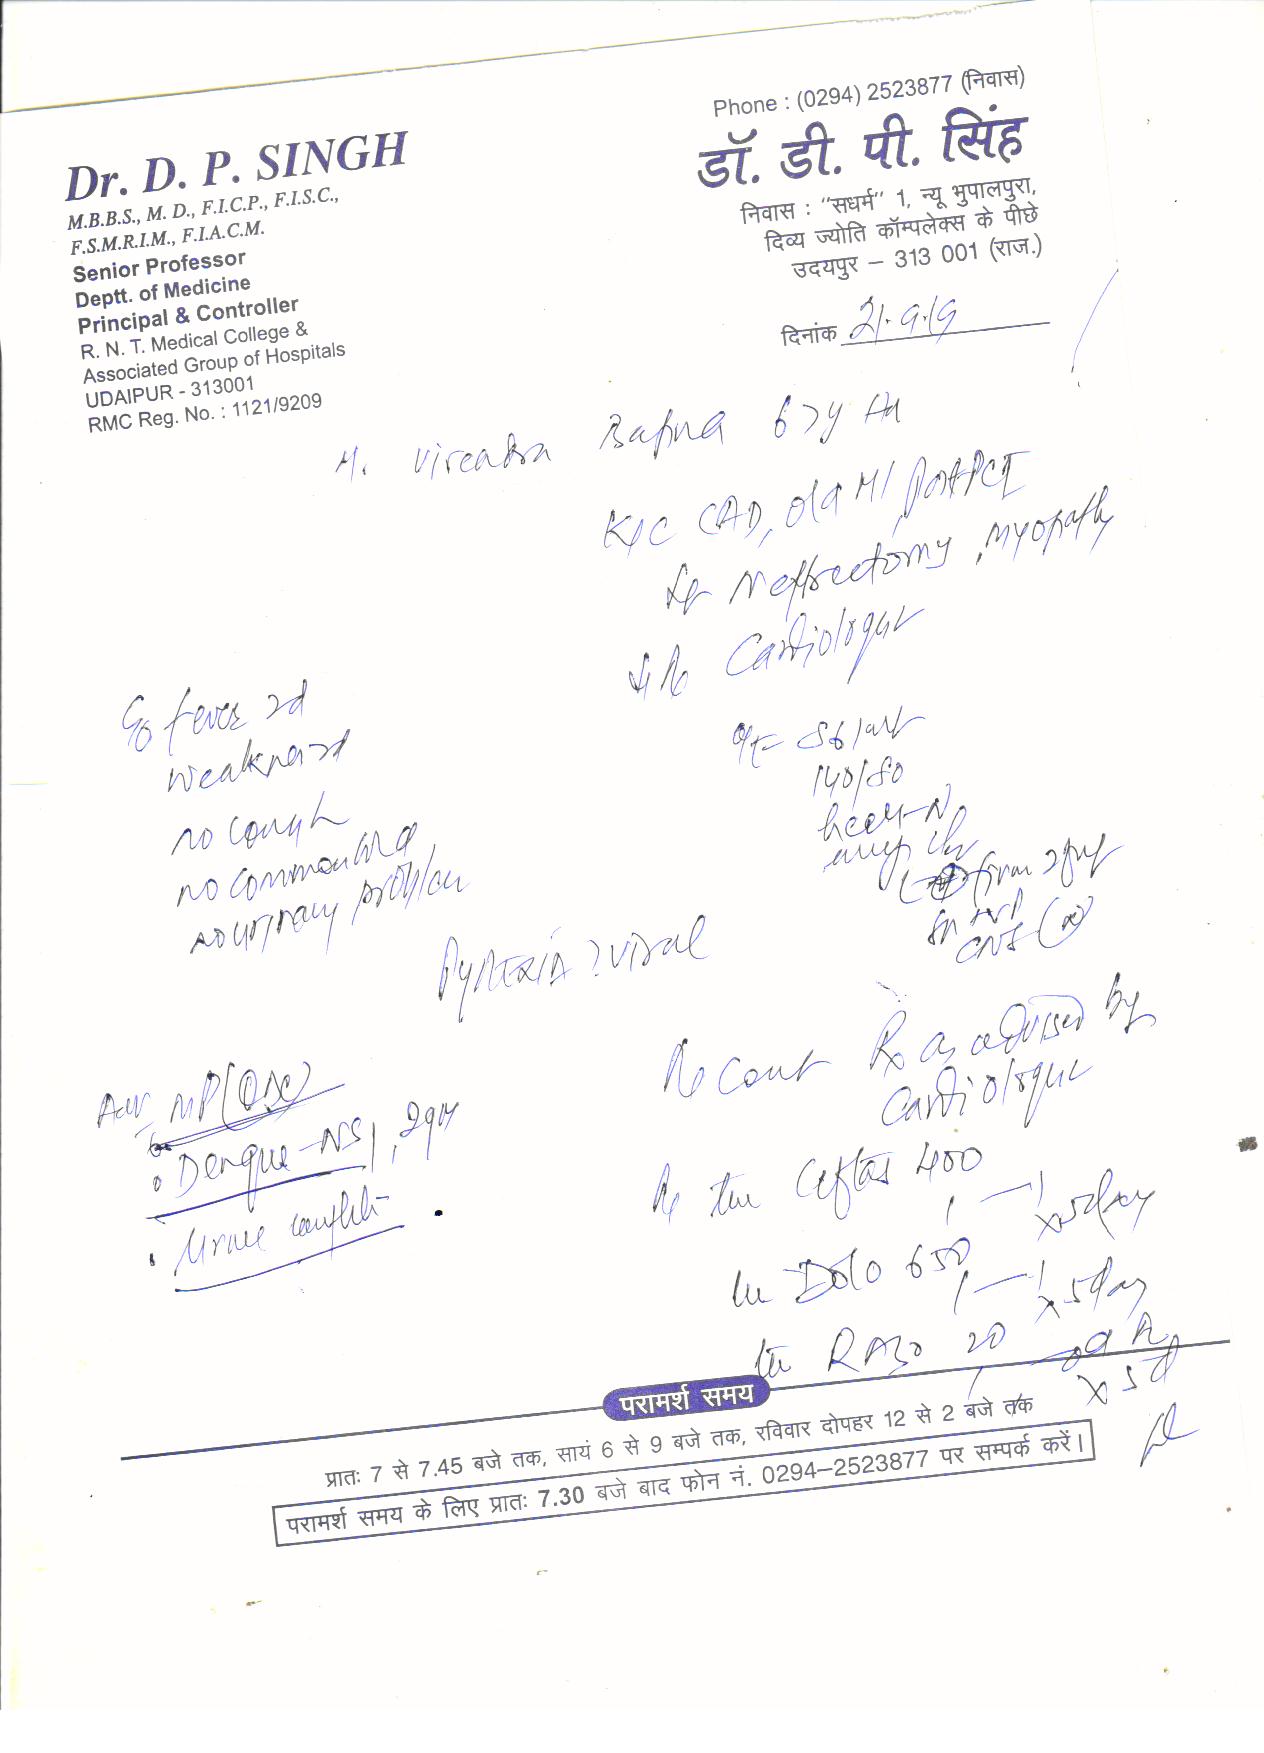 Phone : (0294) 2523877 (निवास)
Dr. D. P. SINGH
M.B.B.S., M. D., F.I.C.P., F.I.S.C.,
F.S.M.R.I.M., F.I.A.C.M.
Senior Professor
Deptt. of Medicine
Principal & Controller
R. N. T. Medical College &
Associated Group of Hospitals
UDAIPUR - 313001
RMC Reg. No. : 1121/9209
डॉ. डी. पी. सिंह
निवास : "सधर्म" 1, न्यू भुपालपुरा,
दिव्य ज्योति कॉम्पलेक्स के पीछे
उदयपुर – 313 001 (राज.)
दिनांक 21.9.19
Virendra Bapna 67y
K/C CAD, old MI, Post PCI
Neffrectomy, Myopathy
Cardiologist
C/o fever 2d
weakness 2d
no cough
no common cold
no urinary problem
O/E 86/
140/80
CNS (N)
Pyrexia ? viral
Adv MP (QBC)
Dengue-NS1, IgM
Urine complete
Cont Rx as advised by
Cardiologist
Ceftas 400
1 — 1 x 5 day
Dolo 650
1 — 1 x 5 day
Razo 20
1
x 5d
परामर्श समय
प्रातः 7 से 7.45 बजे तक, सायं 6 से 9 बजे तक, रविवार दोपहर 12 से 2 बजे तक
परामर्श समय के लिए प्रातः 7.30 बजे बाद फोन नं. 0294–2523877 पर सम्पर्क करें।